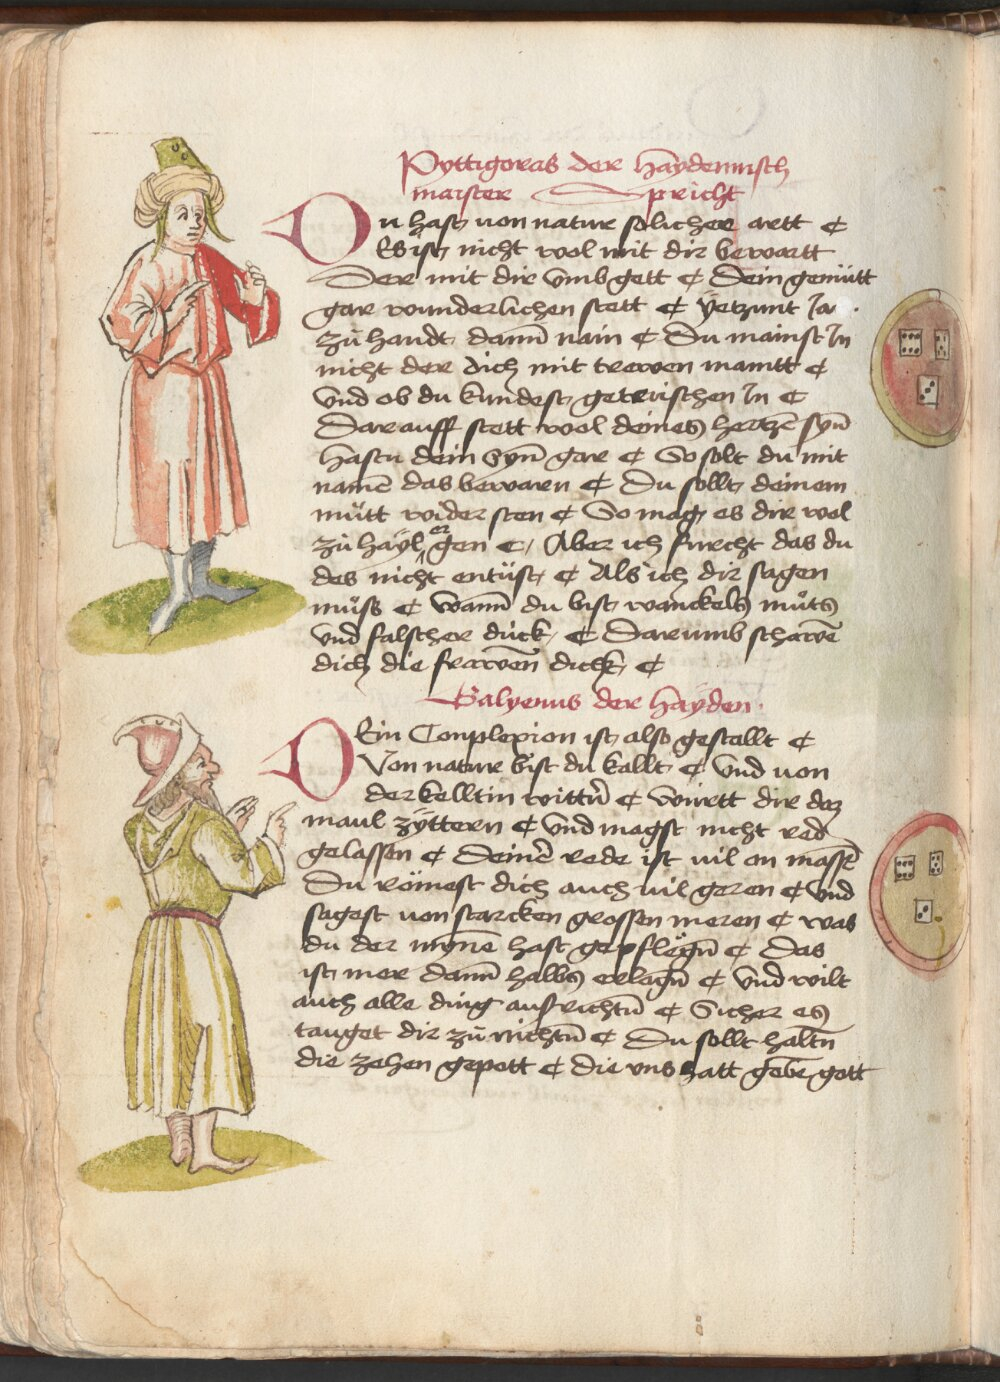 Pyttigoras der haydennisch
maister Spricht
Du hast von natur sollicher artt ¢
Es ist nicht wol mit dir bewartt
Der mit dir vmb gett ¢ Dein gemütt
gar wunderlichen stett ¢ yetzunt Ja
zü handt dann nain ¢ Du mainst Jn
nicht der dich mit trewen maintt ¢
Vnd ob du kundest geterischen Jn ¢
Darauff stett wol deines hertzē syn̄
hastu dein Syn̄ gar ¢ So solt du mit
namē das bewarn ¢ Du sollt deinem
mütt wider sten ¢ So mag es dir wol
zü hayl ergen ¢ Aber ich furcht das du
des nicht entüst ¢ Als ich dir sagen
müss ¢ wann̄ du bist wanckels müts
vnd falscher dück ¢ Darumb schawē
dich die frawen dick ¢
Galyenus der hayden
Dein Complexion ist also gestallt ¢
Von natur bist du kallt ¢ Vnd von
der kelltin wittū ¢ Württ dir daz
maul zyttern ¢ Vnd magst nicht red
gelassen ¢ Deinē rede ist vil on massē
Du römest dich auch vil geren ¢ Vnd
sagest von starcken grossen meren ¢ was
du der mynē hast gepflegn̄ ¢ Das
ist mer dann̄ halbs erlagn̄ ¢ Vnd wilt
auch alle ding ausrichtn̄ ¢ Sicher es
tauget dir zü nichtn̄ ¢ Du sollt haltn̄
die zehen gepott ¢ die vns hatt gebē gott